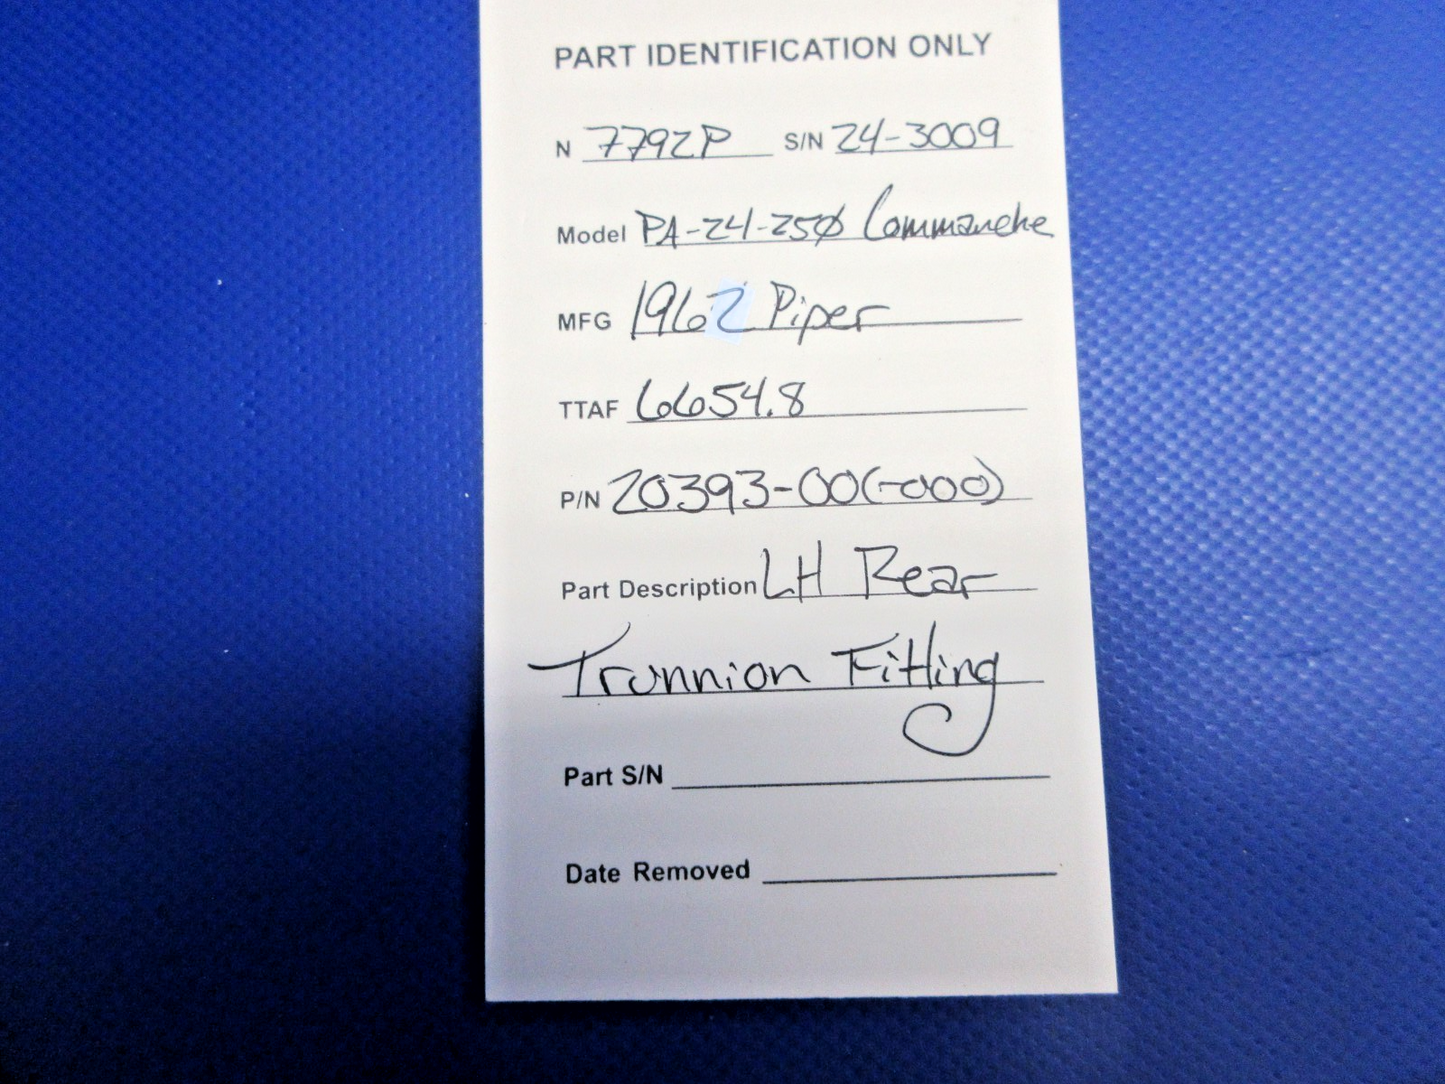 PART IDENTIFICATION ONLY
N 7792P S/N 24-3009
Model PA-24-250 Commanche
MFG 1962 Piper
TTAF 6654.8
P/N 20393-00(-000)
Part Description LH Rear
Trunnion Fitting
Part S/N
Date Removed